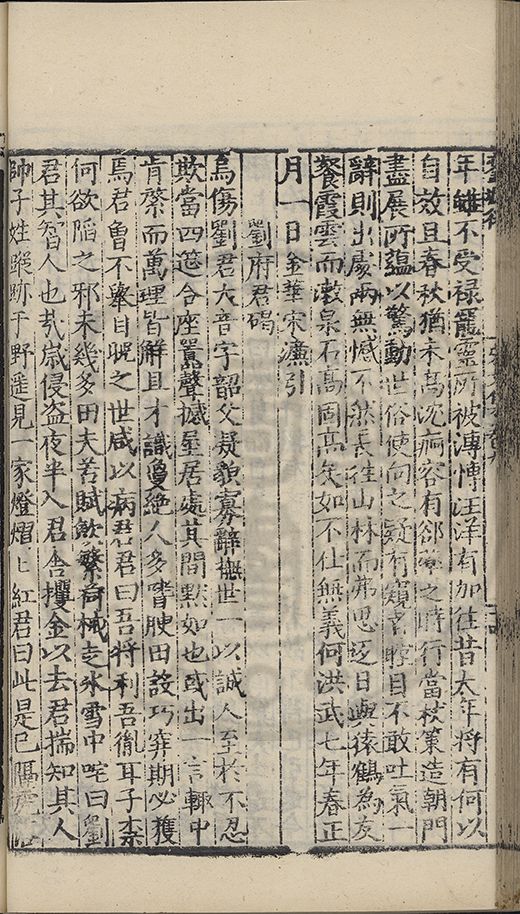 年雖不受祿寵靈所被漙愽汪洋有加往昔太年將有何以
自效且春秋猶未髙沈痾容有郤藥之時行當杖策造朝門
盡展所蘊以驚動世俗使向之疑有窺者瞠目不敢吐氣一
辭則出處兩無憾不然長往山林而弗思迄日與猿鶴為友
餐霞雲而漱泉石髙固髙矣如不仕無義何洪武七年春正
月一日金華宋濂引
劉府君碣
烏傷劉君大音字韶父疑貌寡辭撫世一以誠人至於不忍
欺當四筵合座嚚聲撼屋居處其間黙如也或出一言輒中
肯綮而萬理皆解且才識夐絕人多嗜腴田設巧穽期必獲
焉君曾不舉目睨之世咸以病君君曰吾將利吾胤耳子柰
何欲陷之邪未幾多田夫苦賦歛繁荷械走氷雪中咤曰劉
君其智人也㢤嵗侵盗夜半入君舎攫金以去君揣知其人
帥子姓蹤跡于野遥見一家燈熠上紅君曰此是已隔